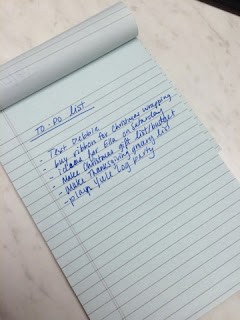 TO-DO LIST
- Text Debbie
- buy ribbon for Christmas wrapping
- ideas for Ella on Saturday
- Make Christmas gift list/budget
- Make Thanksgiving grocery list
- plan Yule Log Party